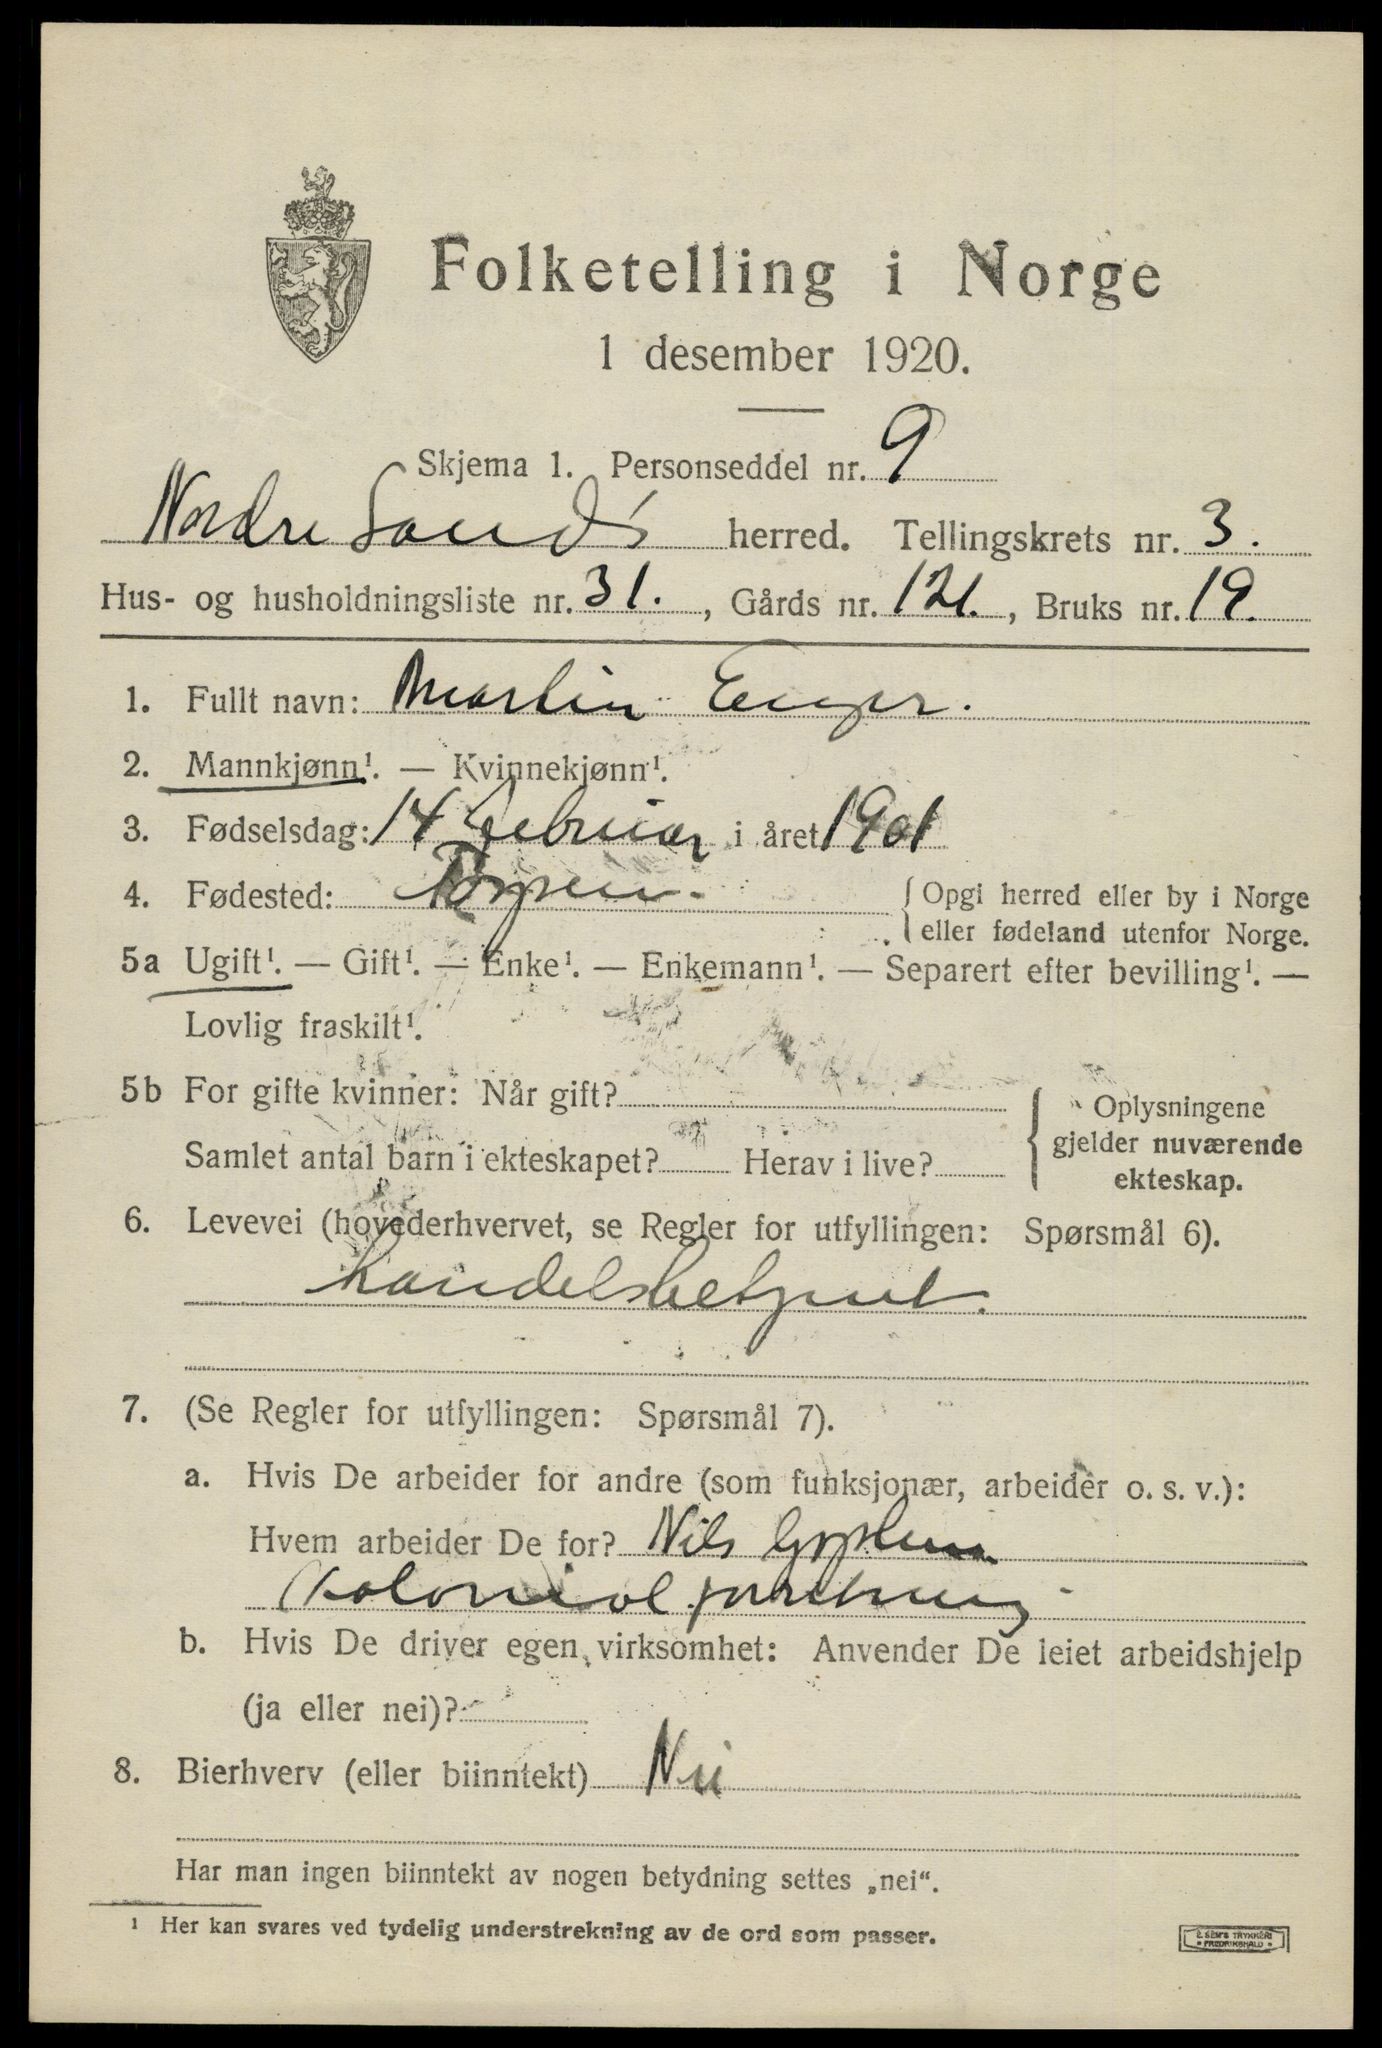 Folketelling i Norge
1 desember 1920.
Skjema 1. Personseddel nr. 9
Nordre Land's herred. Tellingskrets nr. 3.
Hus- og husholdningsliste nr. 31., Gårds nr. 121., Bruks nr. 19.
1. Fullt navn: Martin Enger.
2. Mannkjønn¹. — Kvinnekjønn¹.
3. Fødselsdag: 14 februar i året 1901
4. Fødested:
{ Opgi herred eller by i Norge
eller fødeland utenfor Norge.
5a Ugift¹. — Gift¹. — Enke¹. — Enkemann¹. — Separert efter bevilling¹. —
Lovlig fraskilt¹.
5b For gifte kvinner: Når gift?
Samlet antal barn i ekteskapet? Herav i live?
{ Oplysningene
gjelder nuværende
ekteskap.
6. Levevei (hovederhvervet, se Regler for utfyllingen: Spørsmål 6).
handelsbetjent.
7. (Se Regler for utfyllingen: Spørsmål 7).
a. Hvis De arbeider for andre (som funksjonær, arbeider o. s. v.):
Hvem arbeider De for? Nils
Kolonial forretning
b. Hvis De driver egen virksomhet: Anvender De leiet arbeidshjelp
(ja eller nei)?
8. Bierhverv (eller biinntekt) Nei
Har man ingen biinntekt av nogen betydning settes „nei“.
¹ Her kan svares ved tydelig understrekning av de ord som passer.
E. SEM'S TRYKKERI
• FREDRIKSHALD •